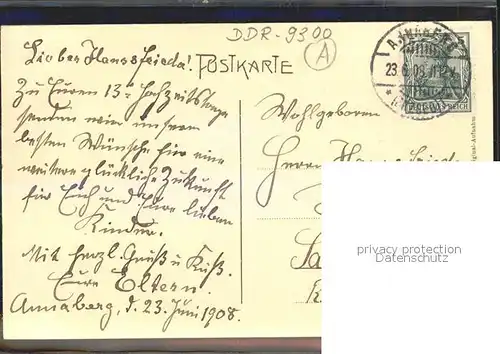 DDR-9300
A
Lieber Hans, Frieda!
POSTKARTE
Zu Euren 13ten Hochzeitstage
senden wir unsern
besten Wünsche für eine
weitere glückliche Zukunft
für Euch und Eure lieben
Kinder.
Mit herzl. Gruß u Kuß.
Eure Eltern.
Annaberg, d. 23. Juni 1908.
ANNABERG
23.6.08.
(ERZGEB.)
REICH
Wohlgeboren
Herrn
privacy protection
Datenschutz